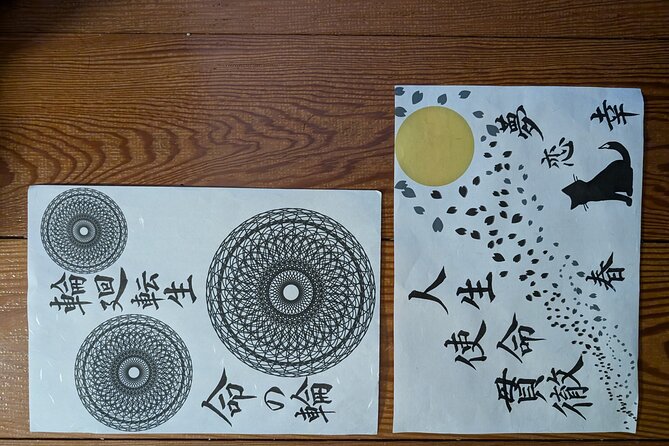 輪廻転生
命の輪
夢
恋
幸
春
人生
使命
貫徹